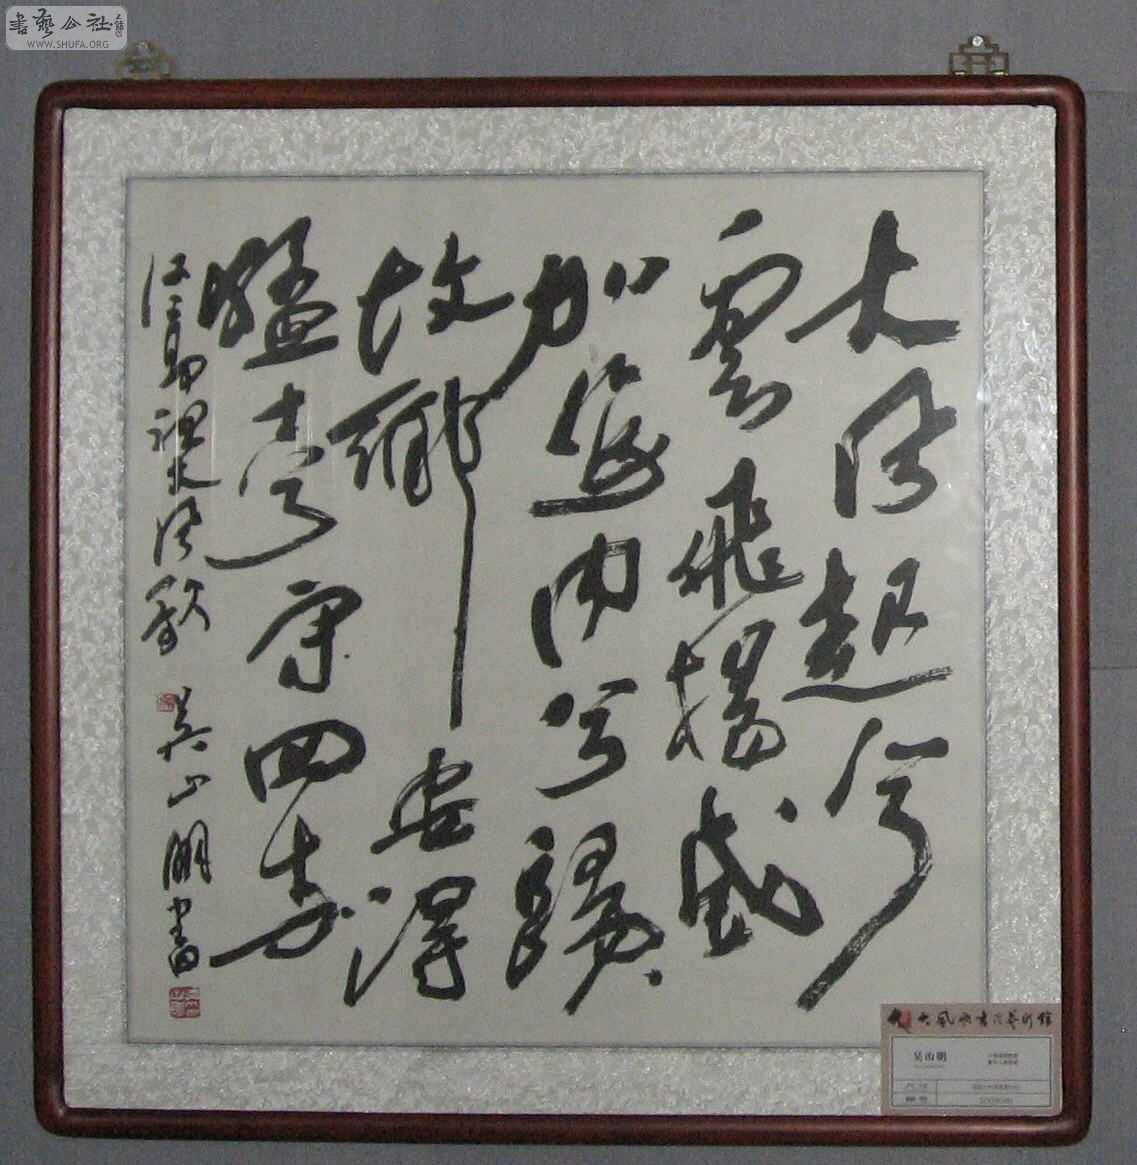 書藝公社
WWW.SHUFA.ORG
大風起兮
雲飛揚威
加海内兮歸
故鄉安得
猛士兮守四方
大風歌 吴山明書
大風歌書法藝術館
吴山明
尺寸
编号